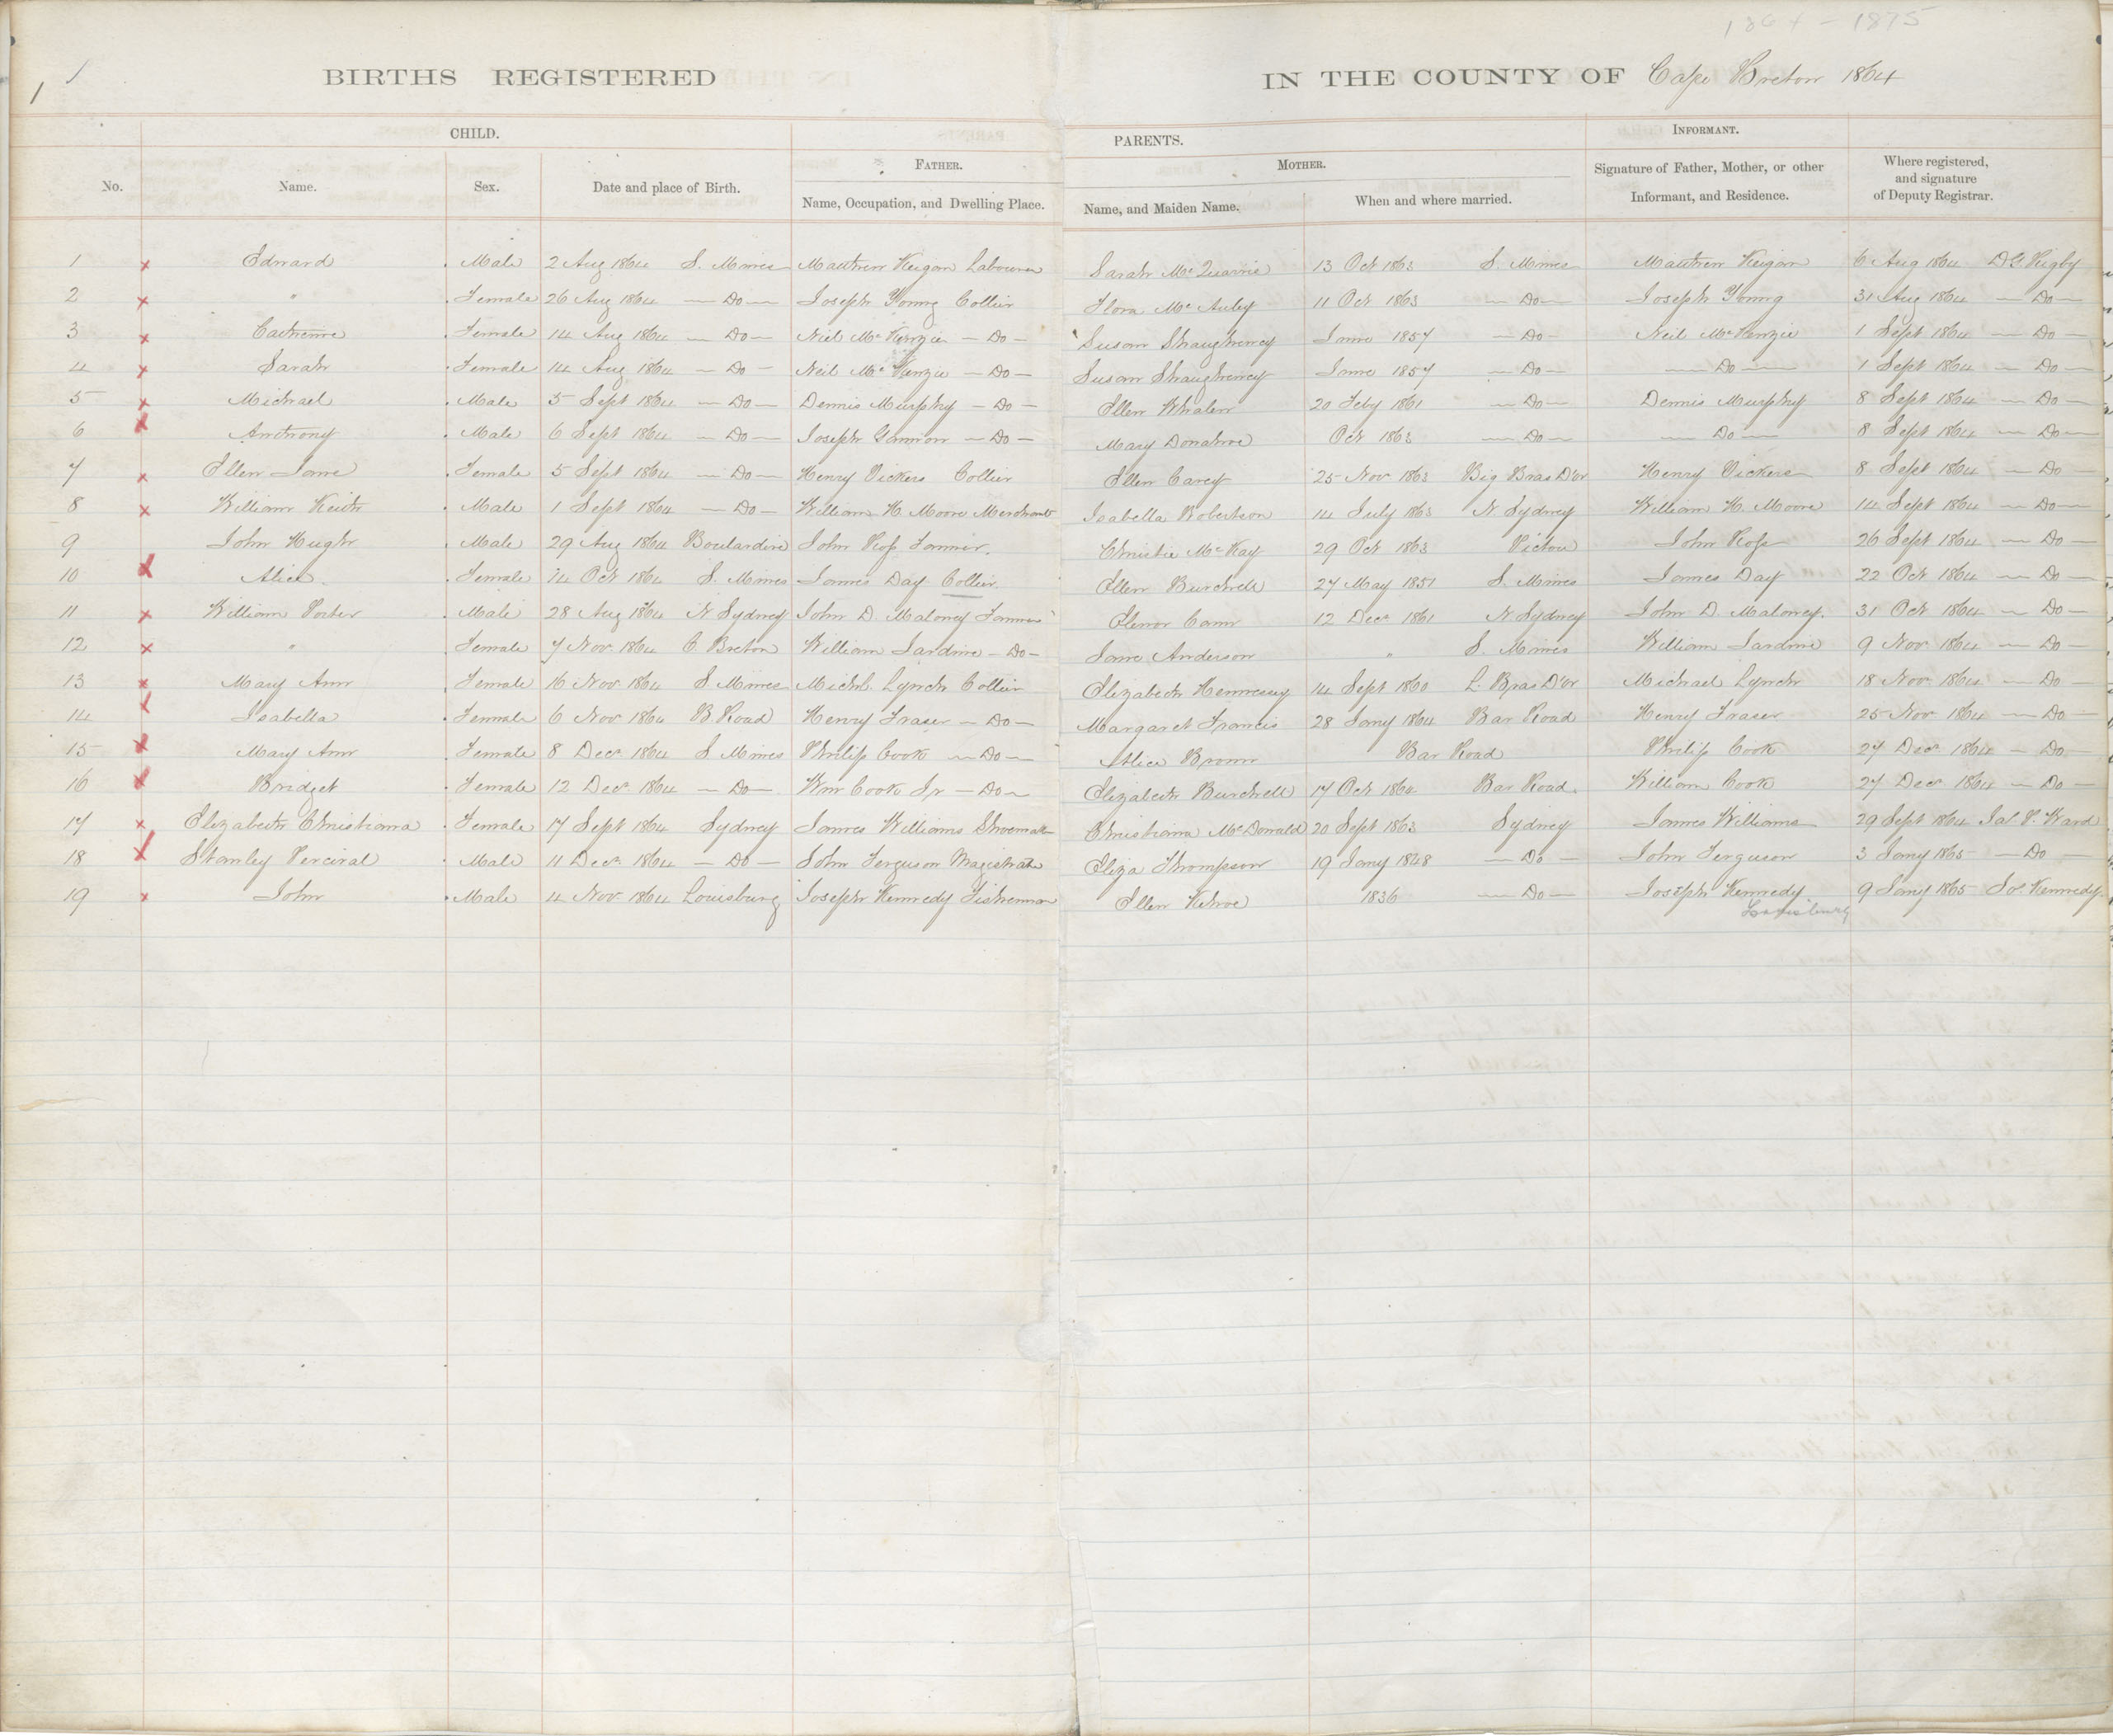 1864 - 1875
1
1
BIRTHS REGISTERED IN THE COUNTY OF Cape Breton 1864
CHILD. PARENTS. INFORMANT.
No. Name. Sex. Date and place of Birth. FATHER. Name, Occupation, and Dwelling Place. MOTHER. Name, and Maiden Name. When and where married. Signature of Father, Mother, or other Informant, and Residence. Where registered, and signature of Deputy Registrar.
1 Edward Male 2 Aug 1864 S. Mines Matthew Keigan Labourer Sarah Mc Quarrie 13 Oct 1863 S. Mines Matthew Keigan 6 Aug 1864 D G Rigby
2 " Female 26 Aug 1864 — Do — Joseph Young Collier Flora Mc Auley 11 Oct 1863 — Do — Joseph Young 31 Aug 1864 — Do —
3 Catherine Female 14 Aug 1864 — Do — Neil Mc Kenzie — Do — Susan Shaughnency June 1857 — Do — Neil Mc Kenzie 1 Sept 1864 — Do —
4 Sarah Female 14 Aug 1864 — Do — Neil Mc Kenzie — Do — Susan Shaughnency June 1857 — Do — — Do — 1 Sept 1864 — Do —
5 Michael Male 5 Sept 1864 — Do — Dennis Murphy — Do — Ellen Whalen 20 Feby 1861 — Do — Dennis Murphy 8 Sept 1864 — Do —
6 Anthony Male 6 Sept 1864 — Do — Joseph Gannon — Do — Mary Donahoe Oct 1863 — Do — — Do — 8 Sept 1864 — Do —
7 Ellen Jane Female 5 Sept 1864 — Do — Henry Vickers Collier Ellen Carey 25 Nov 1863 Big Bras D'or Henry Vickers 8 Sept 1864 — Do —
8 William Keith Male 1 Sept 1864 — Do — William H Moore Merchant Isabella Robertson 14 July 1863 N. Sydney William H. Moore 14 Sept 1864 — Do —
9 John Hugh Male 29 Aug 1864 Boulardrie John Ross Farmer. Christie Mc Kay 29 Oct 1863 Pictou John Ross 26 Sept 1864 — Do —
10 Alice Female 14 Oct 1864 S. Mines James Day Collier. Ellen Burchell 27 May 1851 S. Mines James Day 22 Oct 1864 — Do —
11 William Porter Male 28 Aug 1864 N Sydney John D Maloney Farmer Elenor Cann 12 Decr 1861 N Sydney John D. Maloney. 31 Oct 1864 — Do —
12 " Female 7 Nov. 1864 C. Breton William Jardine — Do — Jane Anderson " S. Mines William Jardine 9 Nov 1864 — Do —
13 Mary Ann Female 16 Nov 1864 S Mines Michl. Lynch Collier Elizabeth Hennessy 14 Sept 1860 L. Bras D'or Michael Lynch 18 Nov 1864 — Do —
14 Isabella Female 6 Nov 1864 B. Road Henry Fraser — Do — Margaret Francis 28 Jany 1864 Bar Road Henry Fraser 25 Nov 1864 — Do —
15 Mary Ann Female 8 Decr 1864 S Mines Philip Cook — Do — Alice Brown Bar Road Philip Cook 27 Decr 1864 — Do —
16 Bridget Female 12 Decr 1864 — Do — Wm Cook Jr — Do — Elizabeth Burchell 17 Oct 1864 Bar Road. William Cook 27 Decr 1864 — Do —
17 Elizabeth Christiana Female 17 Sept 1864 Sydney James Williams Shoemaker Christiana Mc Donald 20 Sept 1863 Sydney James Williams 29 Sept 1864 Jas P. Ward
18 Stanley Percival Male 11 Decr 1864 — Do — John Ferguson Magistrate Eliza Thompson 19 Jany 1848 — Do — John Ferguson 3 Jany 1865 — Do —
19 John Male 4 Nov 1864 Louisburg Joseph Kennedy Fisherman Ellen Kehoe 1836 — Do — Joseph Kennedy 9 Jany 1865 Kennedy
Louisburg